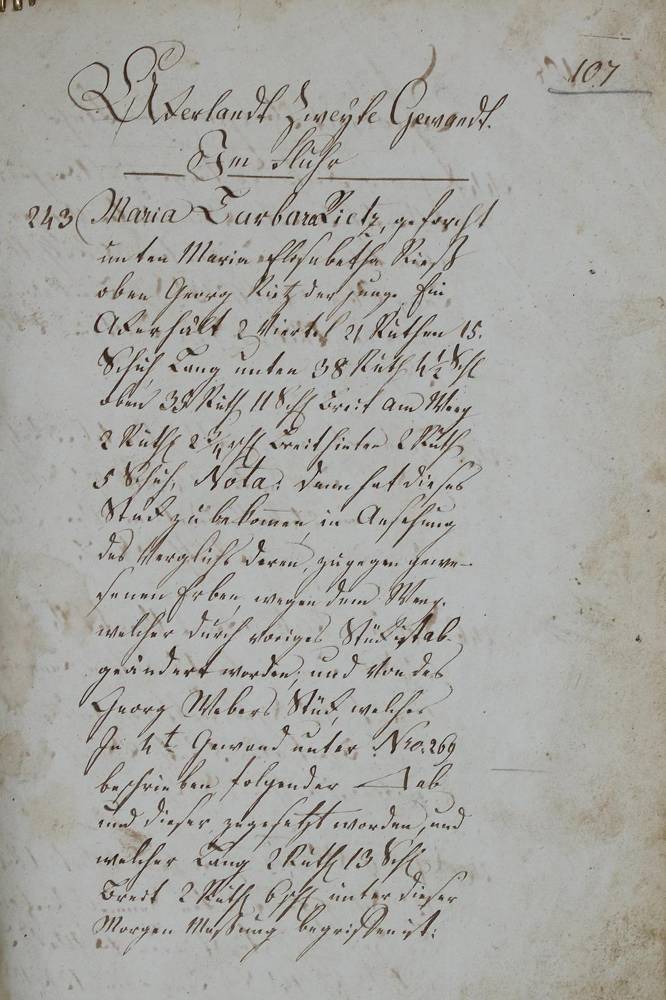 107
Ackerlandt Zweyte Gewandt.
Im Fluhr
243 Maria Barbara Rietz, geforcht
unten Maria Elisabetha Rieß
oben Georg Rietz der junge. Ein
Acker hält 2 Viertel 21 Ruthen 15.
Schuh, Lang unten 38 Ruth 4½ Sch
oben 39 Ruth 11 Sch Breit am Weeg
2 Ruth 2¾ sch, breit hinten 2 Ruth
5 Schuh, Nota: dann hat dieses
Stuck zu bekommen in Ansehung
des Verglichs deren zugegen gewe-
senen Erben, wegen dem Weeg.
welcher durch voriges Stück ist ab-
geändert worden, und von des
Georg Webers Stück, welches
In 4t Gewand unter Nro. 269
beschrieben folgender ab
und dieser zugesetzt worden, und
welcher Lang 2 Ruth 13 Sch
Breit 2 Ruth 6 sch, unter dieser
Morgen Messung begriffen ist.